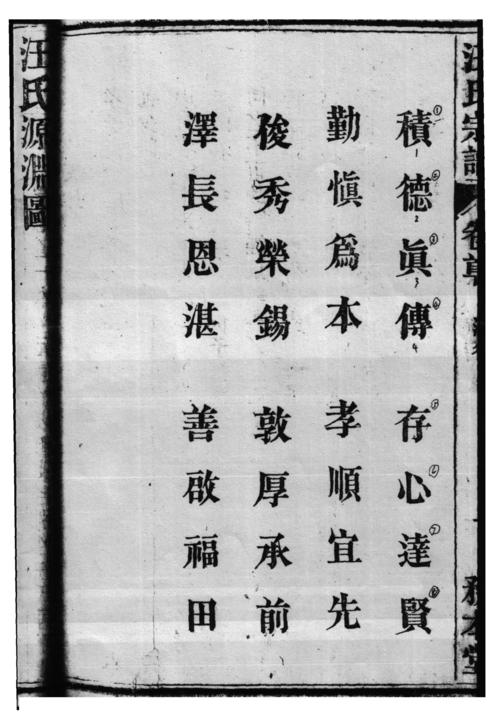 汪氏宗譜 卷首
積德眞傳 存心達賢
勤愼爲本 孝順宜先
俊秀榮錫 敦厚承前
澤長恩湛 善啟福田
汪氏源淵圖